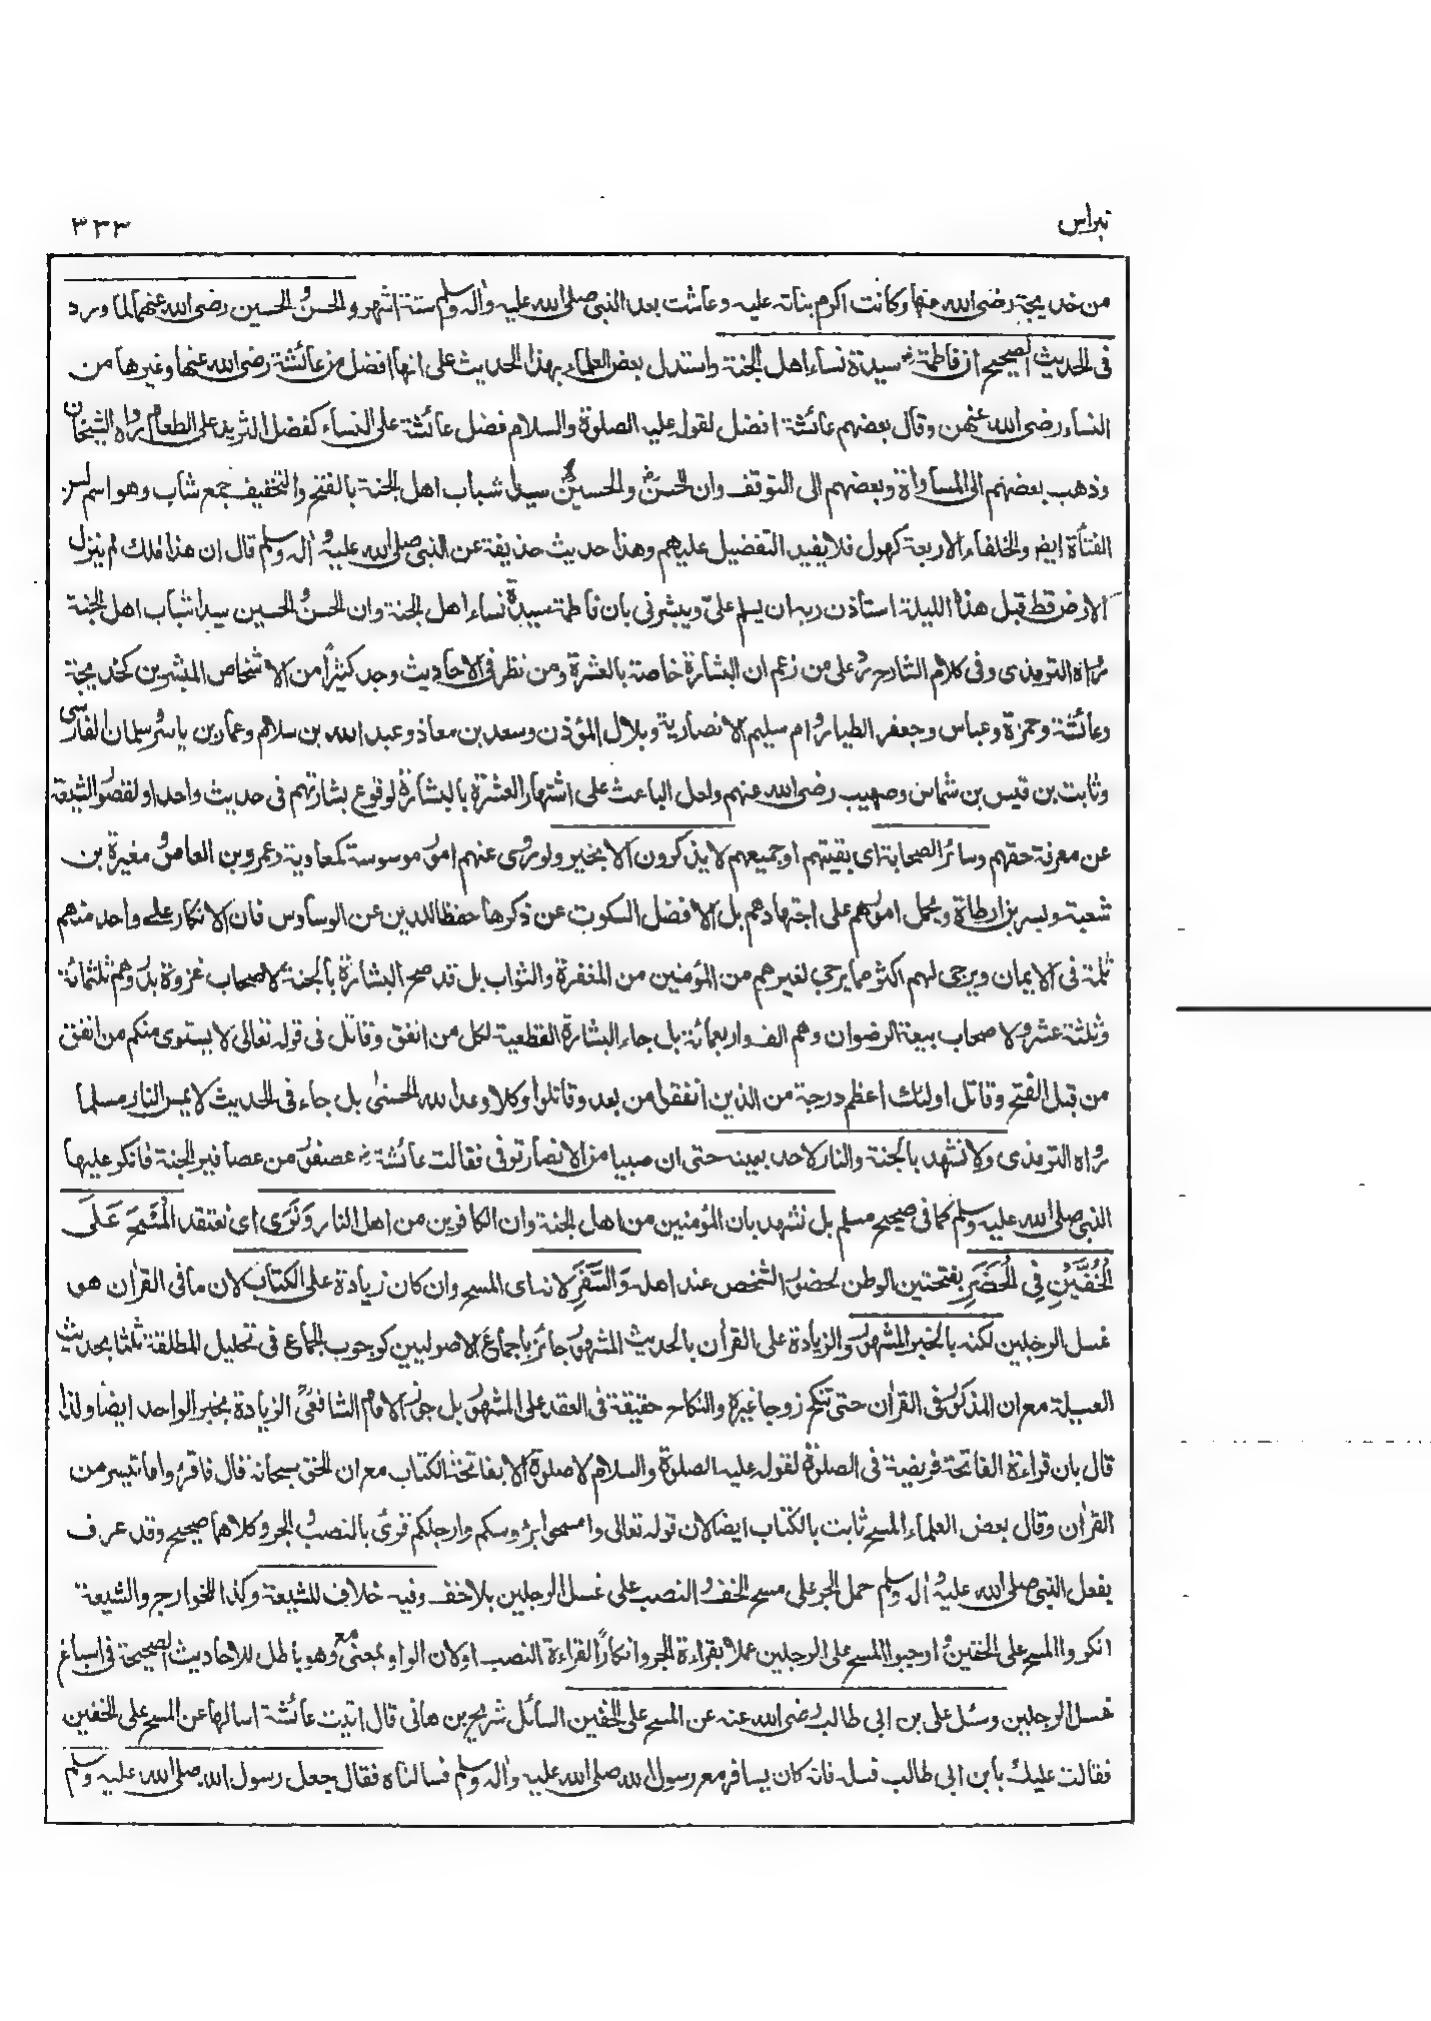 نبراس ٣٣٣
من خديجة رضى الله عنها وكانت اكرم بناته عليه وعاشت بعد النبى صلى الله عليه واله وسلم ستة اشهر والحسن والحسين رضى الله عنهما لما ورد
فى الحديث الصحيح ان فاطمة رض سيدة نساء اهل الجنة واستدل بعض العلماء بهذا الحديث على انها افضل من عائشة رضى الله عنها وغيرها من
النساء رضى الله عنهن وقال بعضهم عائشة افضل لقوله عليه الصلوة والسلام فضل عائشة على النساء كفضل الثريد على الطعام رواه الشيخان
وذهب بعضهم الى المساواة وبعضهم الى التوقف وان الحسن والحسين سيدا شباب اهل الجنة بالفتح والتخفيف جمع شاب وهو اسم لسن
الفتاة ايضا والخلفاء الاربعة كهول فلا يفيد التفضيل عليهم وهذا حديث حذيفة عن النبى صلى الله عليه واله وسلم قال ان هذا ملك لم ينزل
الارض قط قبل هذا الليلة استاذن ربه ان يسلم علىّ ويبشرنى بان فاطمة سيدة نساء اهل الجنة وان الحسن والحسين سيدا شباب اهل الجنة
رواه الترمذى وفى كلام الشارح رد على من زعم ان البشارة خاصة بالعشرة ومن نظر فى الاحاديث وجد كثيرًا من الاشخاص المبشرين كخديجة
وعائشة وحمزة وعباس وجعفر الطيار وام سليم الانصارية وبلال المؤذن وسعد بن معاذ وعبد الله بن سلام وعمار بن ياسر وسلمان الفارسى
وثابت بن قيس بن شماس وصهيب رضى الله عنهم ولعل الباعث على اشتهار العشرة بالبشارة لوقوع بشارتهم فى حديث واحد او لقصور الشيعة
عن معرفة حقهم وسائر الصحابة اى بقيتهم او جميعهم لا يذكرون الا بخير ولو روى عنهم امور موسوسة كمعاوية وعمرو بن العاص ومغيرة بن
شعبة وبسر بن ارطاة ويحمل امورهم على اجتهادهم بل الافضل السكوت عن ذكرها حفظا للدين عن الوساوس فان الانكار على واحد منهم
ثلمة فى الايمان ويرجى لهم اكثر مما يرجى لغيرهم من المؤمنين من المغفرة والثواب بل قد صح البشارة بالجنة لاصحاب غزوة بدر وهم ثلثمائة
وثلثة عشر ولاصحاب بيعة الرضوان وهم الف واربعمائة بل جاء البشارة القطعية لكل من انفق وقاتل فى قوله تعالى لا يستوى منكم من انفق
من قبل الفتح وقاتل اولئك اعظم درجة من الذين انفقوا من بعد وقاتلوا وكلا وعد الله الحسنى بل جاء فى الحديث لا يمس النار مسلما
رواه الترمذى ولا نشهد بالجنة والنار لاحد بعينه حتى ان صبيا من الانصار توفى فقالت عائشة رض عصفور من عصافير الجنة فانكر عليها
النبى صلى الله عليه وسلم كما فى صحيح مسلم بل نشهد بان المؤمنين من اهل الجنة وان الكافرين من اهل النار وَنَرٰى اى نعتقد الْمَسْحَ عَلَى
الْخُفَّيْنِ فِي الْحَضَرِ بفتحتين الوطن لحضور الشخص عند اهله وَالسَّفَرِ لانه اى المسح وان كان زيادة على الكتاب لان ما فى القران هو
غسل الرجلين لكنه بالخبر المشهور والزيادة على القران بالحديث المشهور جائز باجماع الاصوليين كوجوب الجماع فى تحليل المطلقة ثلثا بحديث
العسيلة مع ان المذكور فى القران حتى تنكح زوجا غيره والنكاح حقيقة فى العقد على المشهور بل جوز الامام الشافعى الزيادة بخبر الواحد ايضا ولذا
قال بان قراءة الفاتحة فريضة فى الصلوة لقوله عليه الصلوة والسلام لا صلوة الا بفاتحة الكتاب مع ان الحق سبحانه قال فاقرؤا ما تيسر من
القران وقال بعض العلماء المسح ثابت بالكتاب ايضا لان قوله تعالى وامسحوا برؤسكم وارجلكم قرئ بالنصب والجر وكلاهما صحيح وقد عرف
بفعل النبى صلى الله عليه واله وسلم حمل الجر على مسح الخف والنصب على غسل الرجلين بلا خف وفيه خلاف للشيعة وكذا الخوارج والشيعة
انكروا المسح على الخفين واوجبوا المسح على الرجلين عملا بقراءة الجر وانكارًا لقراءة النصب او لان الواو بمعنى مع وهو باطل للاحاديث الصحيحة فى اسباغ
غسل الرجلين وسئل على بن ابى طالب رضى الله عنه عن المسح على الخفين السائل شريح بن هانى قال اتيت عائشة اسالها عن المسح على الخفين
فقالت عليك بابن ابى طالب فسله فانه كان يسافر مع رسول الله صلى الله عليه واله وسلم فسالناه فقال جعل رسول الله صلى الله عليه وسلم